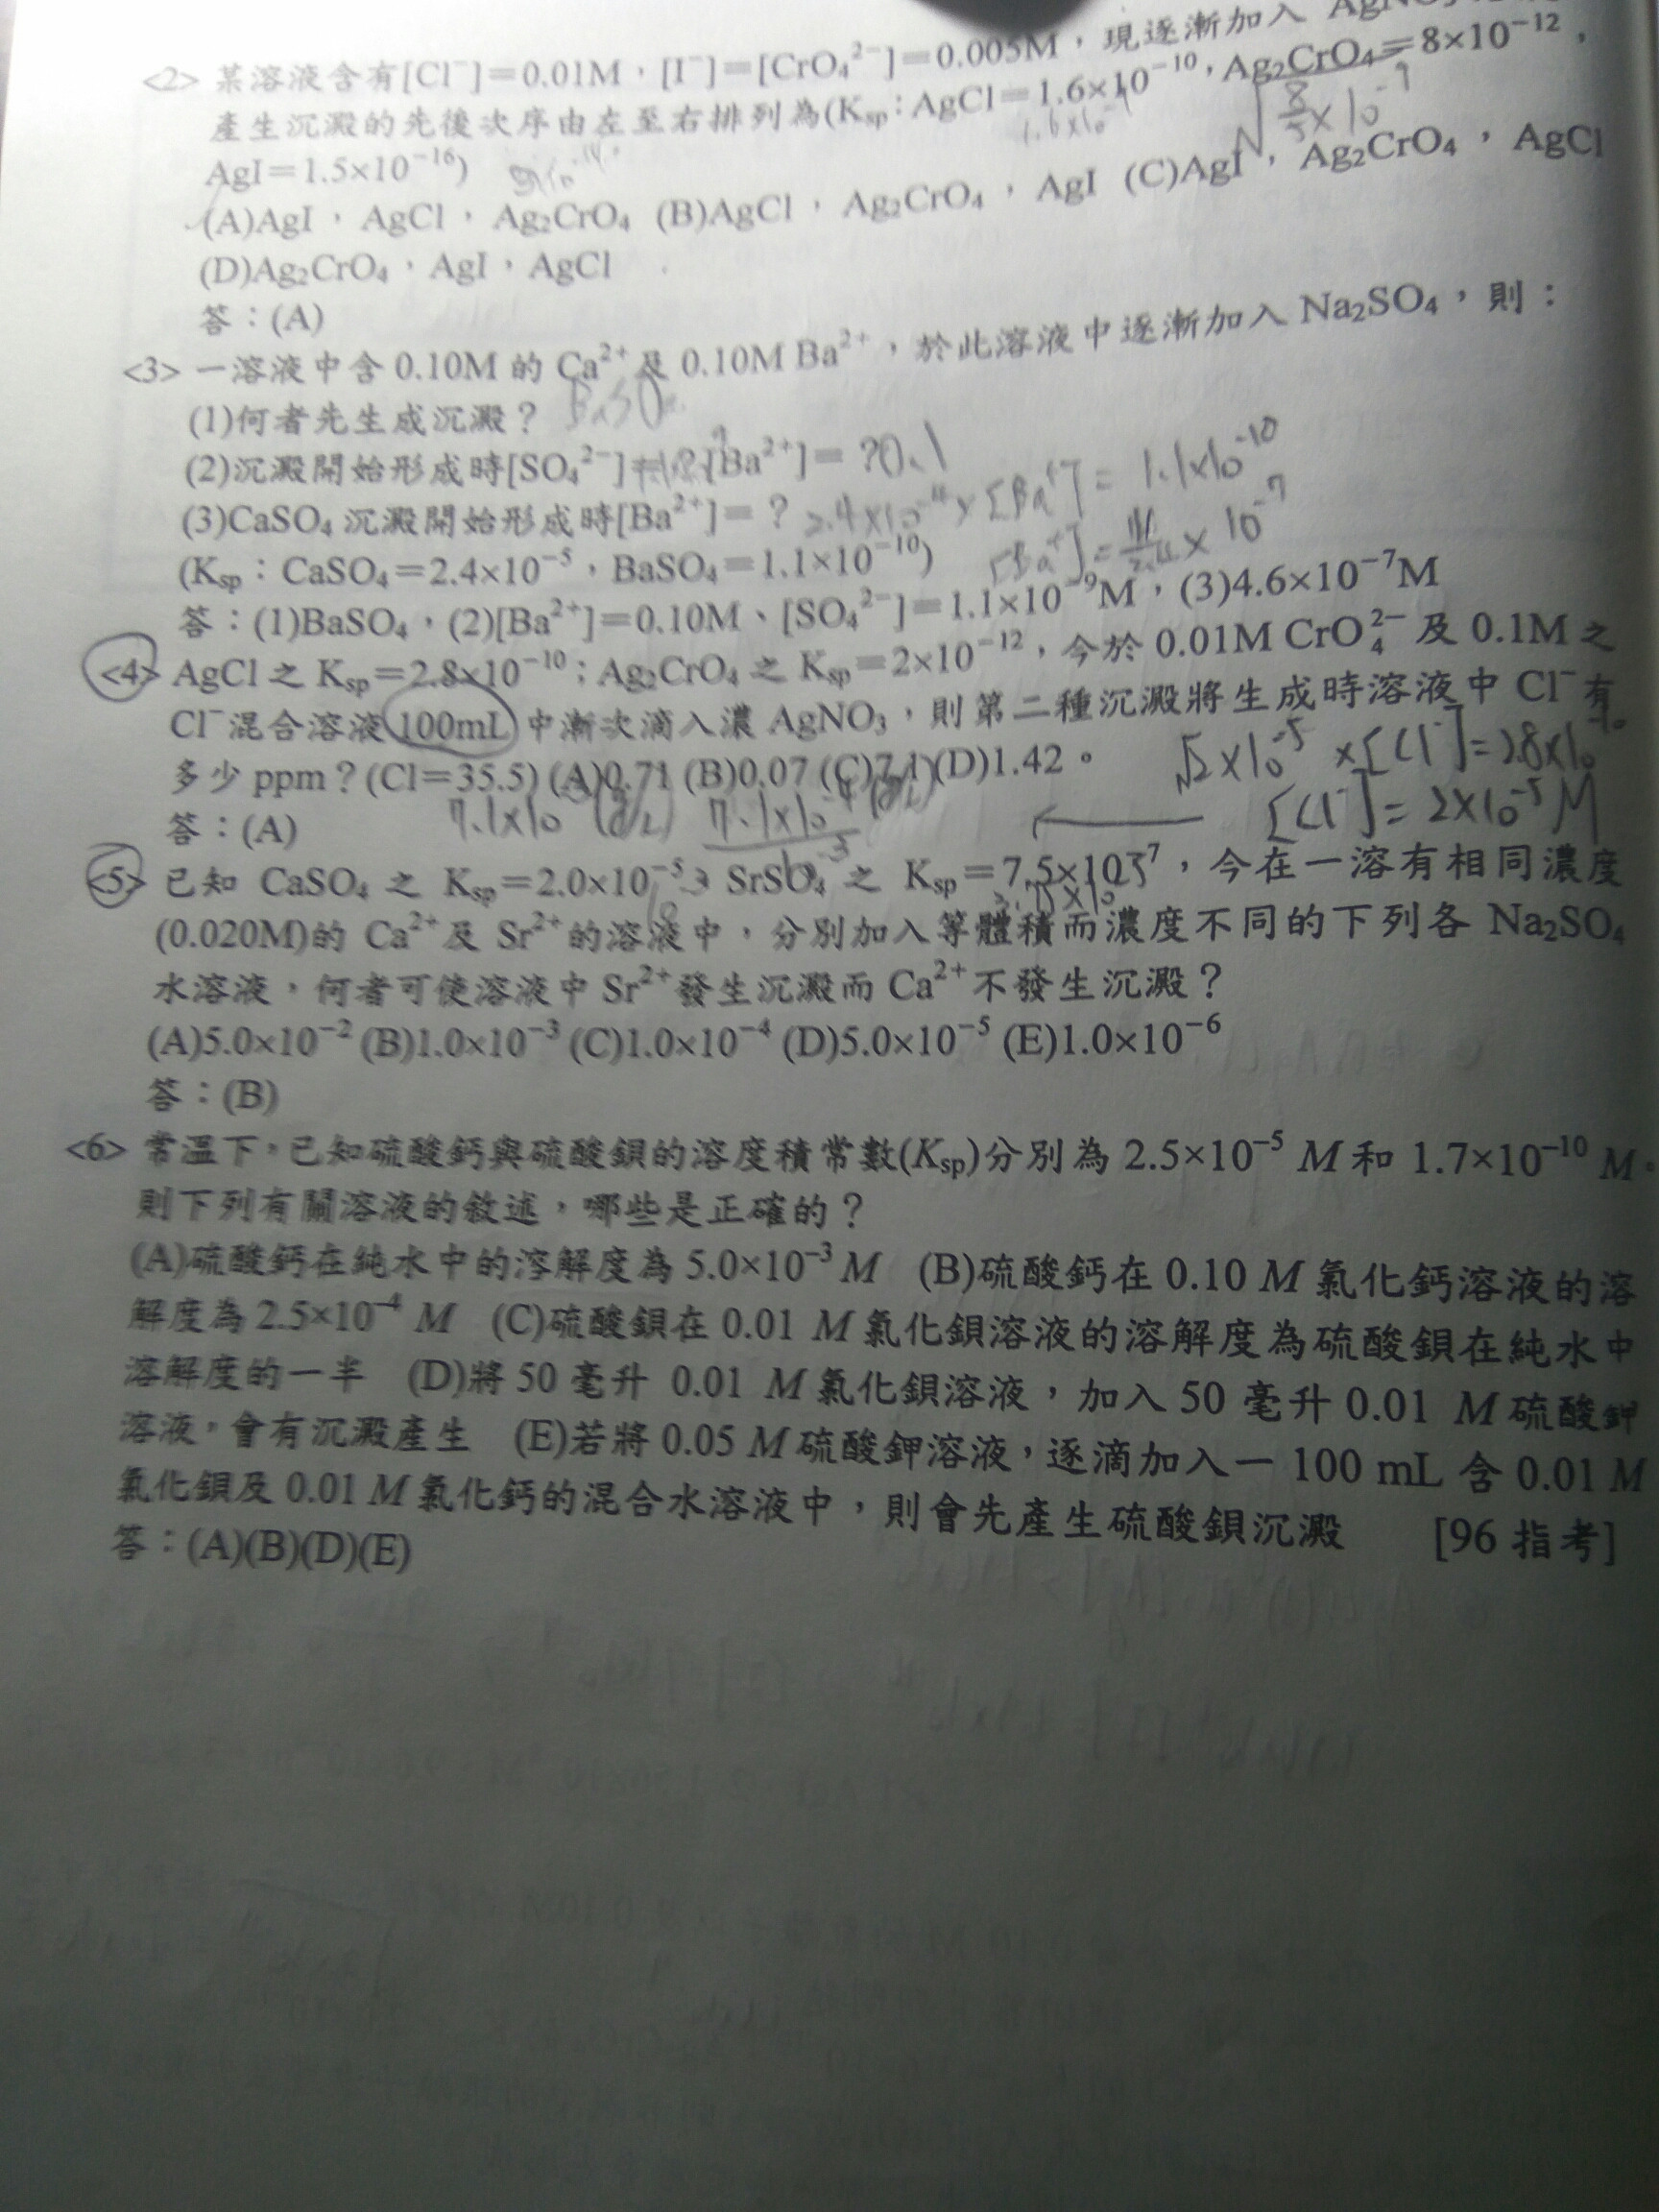 <2> 某溶液含有[Cl⁻]=0.01M，[I⁻]=[CrO₄²⁻]=0.005M，現逐漸加入
產生沉澱的先後次序由左至右排列為(Kₛₚ：AgCl=1.6×10⁻¹⁰，Ag₂CrO₄=8×10⁻¹²，
1.6×10
√8/5×10⁻⁹
AgI=1.5×10⁻¹⁶)
(A)AgI，AgCl，Ag₂CrO₄ (B)AgCl，Ag₂CrO₄，AgI (C)AgI，Ag₂CrO₄，AgCl
(D)Ag₂CrO₄，AgI，AgCl
答：(A)
<3> 一溶液中含 0.10M 的 Ca²⁺及 0.10M Ba²⁺，於此溶液中逐漸加入 Na₂SO₄，則：
(1)何者先生成沉澱？ BaSO₄
(2)沉澱開始形成時[SO₄²⁻]=? [Ba²⁺]=? 0.1
(3)CaSO₄ 沉澱開始形成時[Ba²⁺]=？ 2.4×10⁻⁴×[Ba²⁺]=1.1×10⁻¹⁰
(Kₛₚ：CaSO₄=2.4×10⁻⁵，BaSO₄=1.1×10⁻¹⁰)
答：(1)BaSO₄，(2)[Ba²⁺]=0.10M、[SO₄²⁻]=1.1×10⁻⁹M，(3)4.6×10⁻⁷M
<4> AgCl 之 Kₛₚ=2.8×10⁻¹⁰；Ag₂CrO₄ 之 Kₛₚ=2×10⁻¹²，今於 0.01M CrO₄²⁻ 及 0.1M 之
Cl⁻混合溶液 100mL 中漸次滴入濃 AgNO₃，則第二種沉澱將生成時溶液中 Cl⁻有
多少 ppm？(Cl=35.5) (A)0.71 (B)0.07 (C)7.1 (D)1.42。
√2×10⁻⁵×[Cl⁻]=2.8×10⁻¹⁰
答：(A)
[Cl⁻]=2×10⁻⁵M
<5> 已知 CaSO₄ 之 Kₛₚ=2.0×10⁻⁵，SrSO₄ 之 Kₛₚ=7.5×10⁻⁷，今在一溶有相同濃度
(0.020M)的 Ca²⁺及 Sr²⁺的溶液中，分別加入等體積而濃度不同的下列各 Na₂SO₄
水溶液，何者可使溶液中 Sr²⁺發生沉澱而 Ca²⁺不發生沉澱？
(A)5.0×10⁻² (B)1.0×10⁻³ (C)1.0×10⁻⁴ (D)5.0×10⁻⁵ (E)1.0×10⁻⁶
答：(B)
<6> 常溫下，已知硫酸鈣與硫酸鋇的溶度積常數(Kₛₚ)分別為 2.5×10⁻⁵ M 和 1.7×10⁻¹⁰ M。
則下列有關溶液的敘述，哪些是正確的？
(A)硫酸鈣在純水中的溶解度為 5.0×10⁻³ M (B)硫酸鈣在 0.10 M 氯化鈣溶液的溶
解度為 2.5×10⁻⁴ M (C)硫酸鋇在 0.01 M 氯化鋇溶液的溶解度為硫酸鋇在純水中
溶解度的一半 (D)將 50 毫升 0.01 M 氯化鋇溶液，加入 50 毫升 0.01 M 硫酸鉀
溶液，會有沉澱產生 (E)若將 0.05 M 硫酸鉀溶液，逐滴加入一 100 mL 含 0.01 M
氯化鋇及 0.01 M 氯化鈣的混合水溶液中，則會先產生硫酸鋇沉澱 [96 指考]
答：(A)(B)(D)(E)